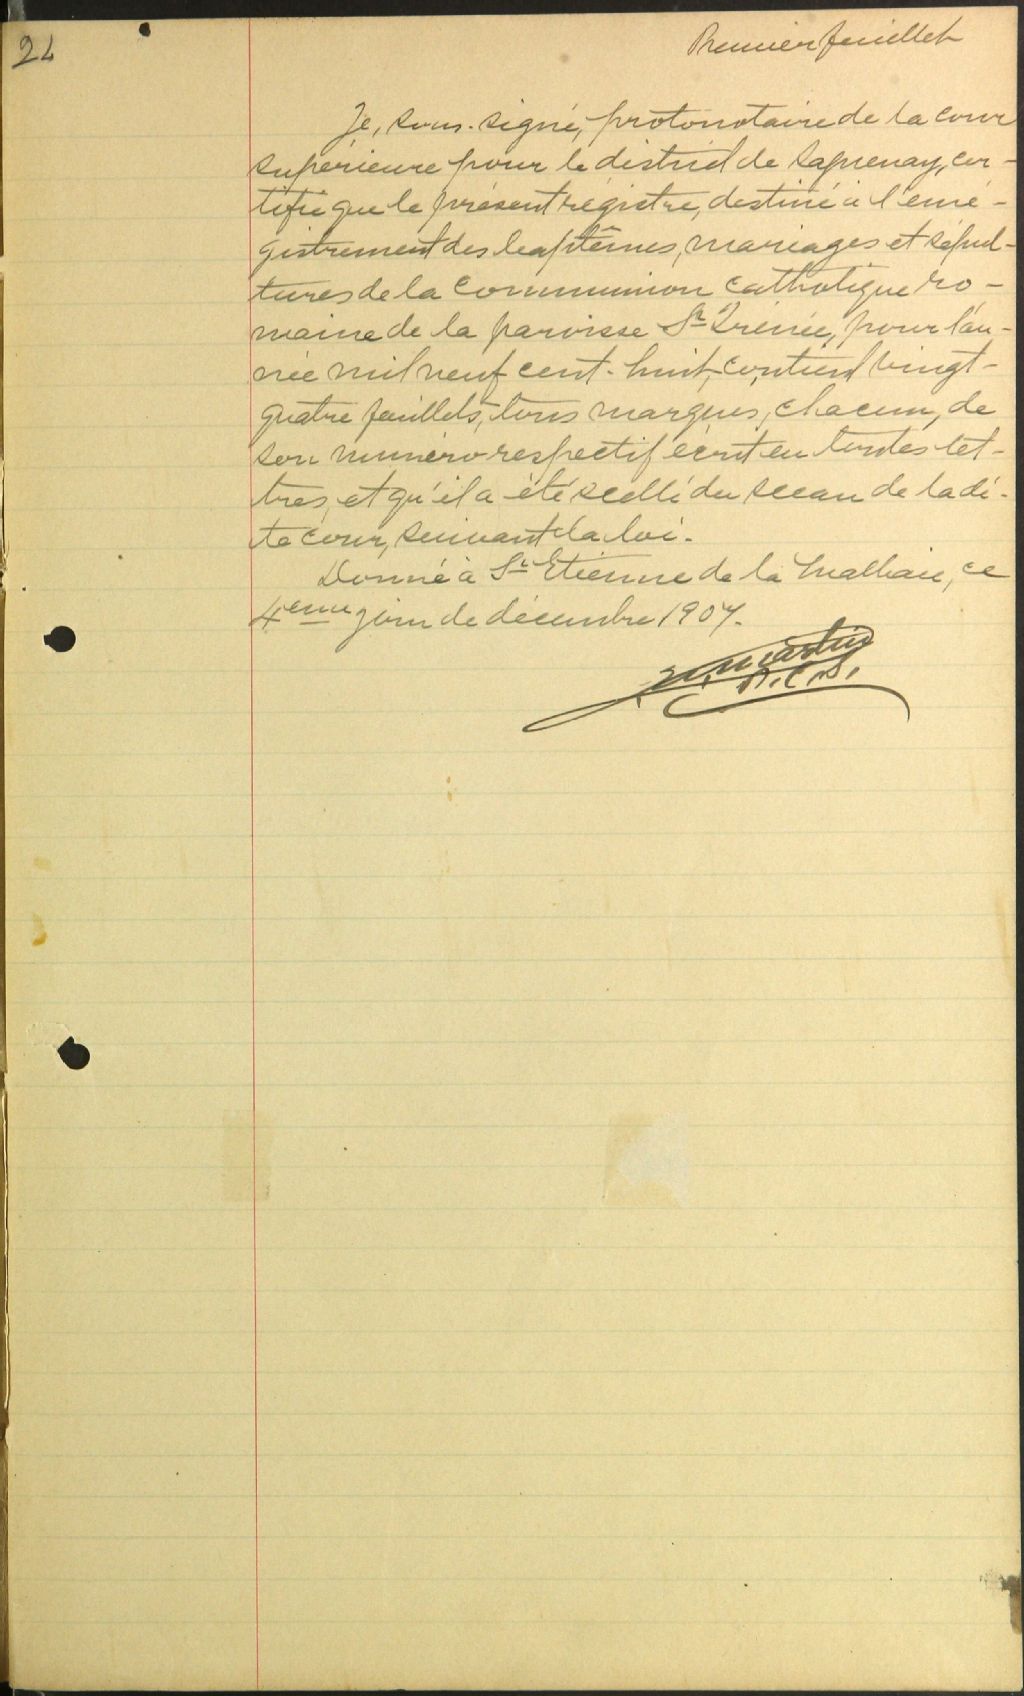 24
Premier feuillet
Je, sous-signé, protonotaire de la cour
supérieure pour le district de Saguenay, cer-
tifie que le présent régistre, destiné à l'enré-
gistrement des baptêmes, mariages et sépul-
tures de la communion catholique ro-
maine de la paroisse St Irénée, pour l'an-
née mil neuf cent-huit, contient vingt-
quatre feuillets, tous marqués, chacun, de
son numéro respectif écrit en toutes let-
tres, et qu'il a été scellé du sceau de la di-
te cour, suivant la loi.
Donné à St Etienne de la Malbaie, ce
4eme jour de décembre 1907.
P.C.S.